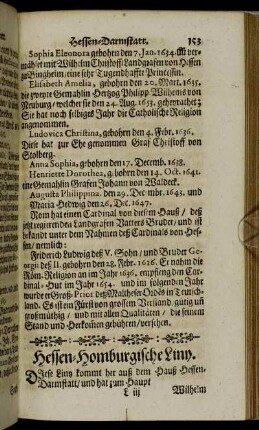 Hessen-Darmstatt. 153
Sophia Eleonora gebohren den 7. Jan. 1634. ist ver-
mählet mit Wilhelm Christoff Landgrafen von Hessen
zu Bingheim, eine sehr Tugendhaffte Princessin.
Elisabeth Amelia, gebohren den 20. Mart. 1635.
die zweyte Gemahlin Hertzog Philipp Wilhelms von
Neuburg / welcher sie den 24. Aug. 1653. geheyrathet;
Sie hat noch selbiges Jahr die Catholische Religion
angenommen.
Ludovica Christina, gebohren den 4. Febr. 1636.
Diese hat zur Ehe genommen Graf Christoff von
Stolberg.
Anna Sophia, gebohren den 17. Decemb. 1638.
Henriette Dorothea, gebohren den 14. Oct. 1641.
eine Gemahlin Grafen Johann von Waldeck.
Augusta Philippina, den 29. Decembr. 1643. und
Maria Hedwig den 26. Dec. 1647.
Rom hat einen Cardinal von diesem Hauß / deß
jetzt regierenden Landgrafen Vatters Bruder, und ist
bekandt unter dem Nahmen deß Cardinals von Hes-
sen / nemlich:
Friderich Ludwig deß V. Sohn / und Bruder Ge-
orgii deß II. gebohren den 28. Febr. 1616. Er nahm die
Röm. Religion an im Jahr 1636. empfieng den Car-
dinal-Hut im Jahr 1654. und im folgenden Jahr
wurde er Groß-Prior deß Maltheser Ordēs in Teutsch-
land. Es ist ein Fürst von grossem Verstand gütig uñ
großmüthig / und mit allen Qualitäten / die seinem
Stand und Herkomen gebühren / versehen.
Hessen-Homburgische Liny.
Diese Liny kommt her auß dem Hauß Hessen-
Darmstatt / und hat zum Haupt
L iij Wilhelm